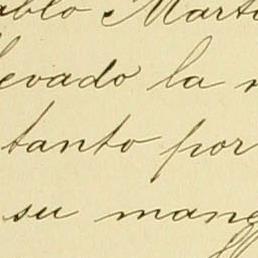 ablo Marti
levado la
tanto por
su man